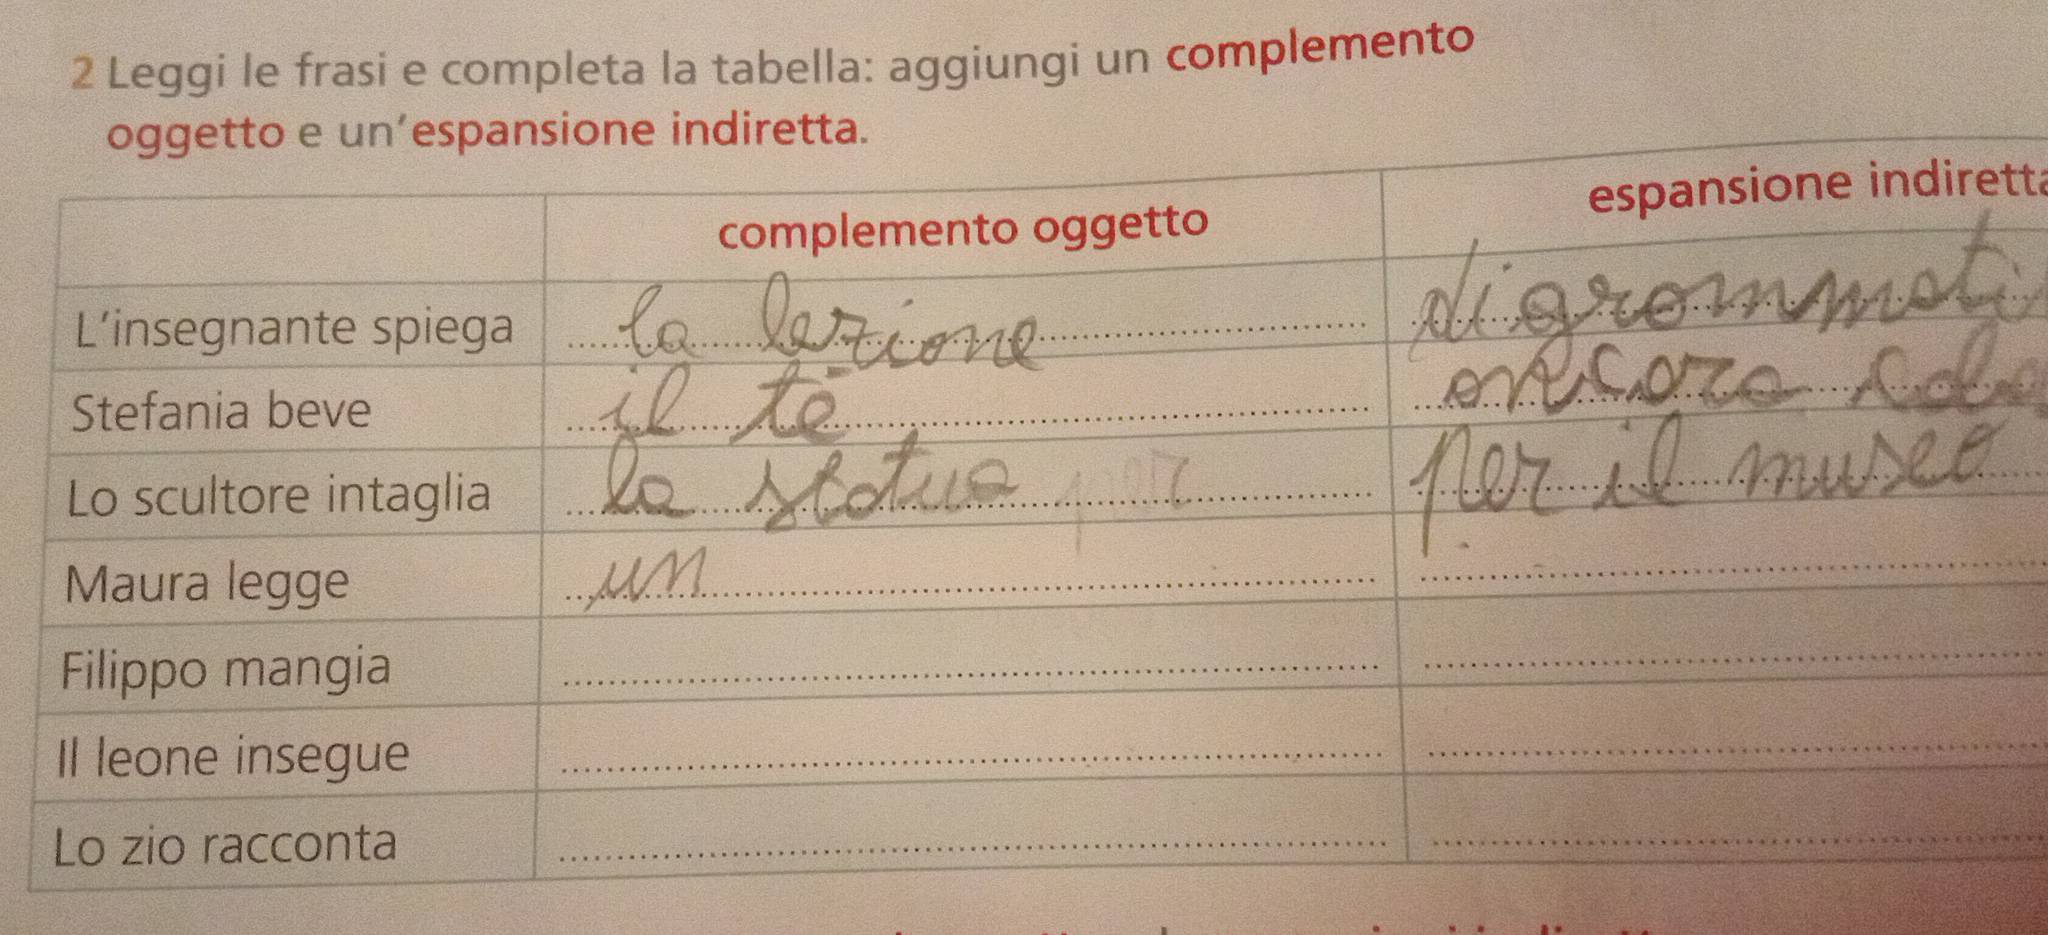 2 Leggi le frasi e completa la tabella: aggiungi un complemento
oggetto e un'espansione indiretta.
complemento oggetto espansione indiretta
L'insegnante spiega la lezione di grammati
Stefania beve il tè ancora
Lo scultore intaglia la statua per per il museo
Maura legge un
Filippo mangia
Il leone insegue
Lo zio racconta